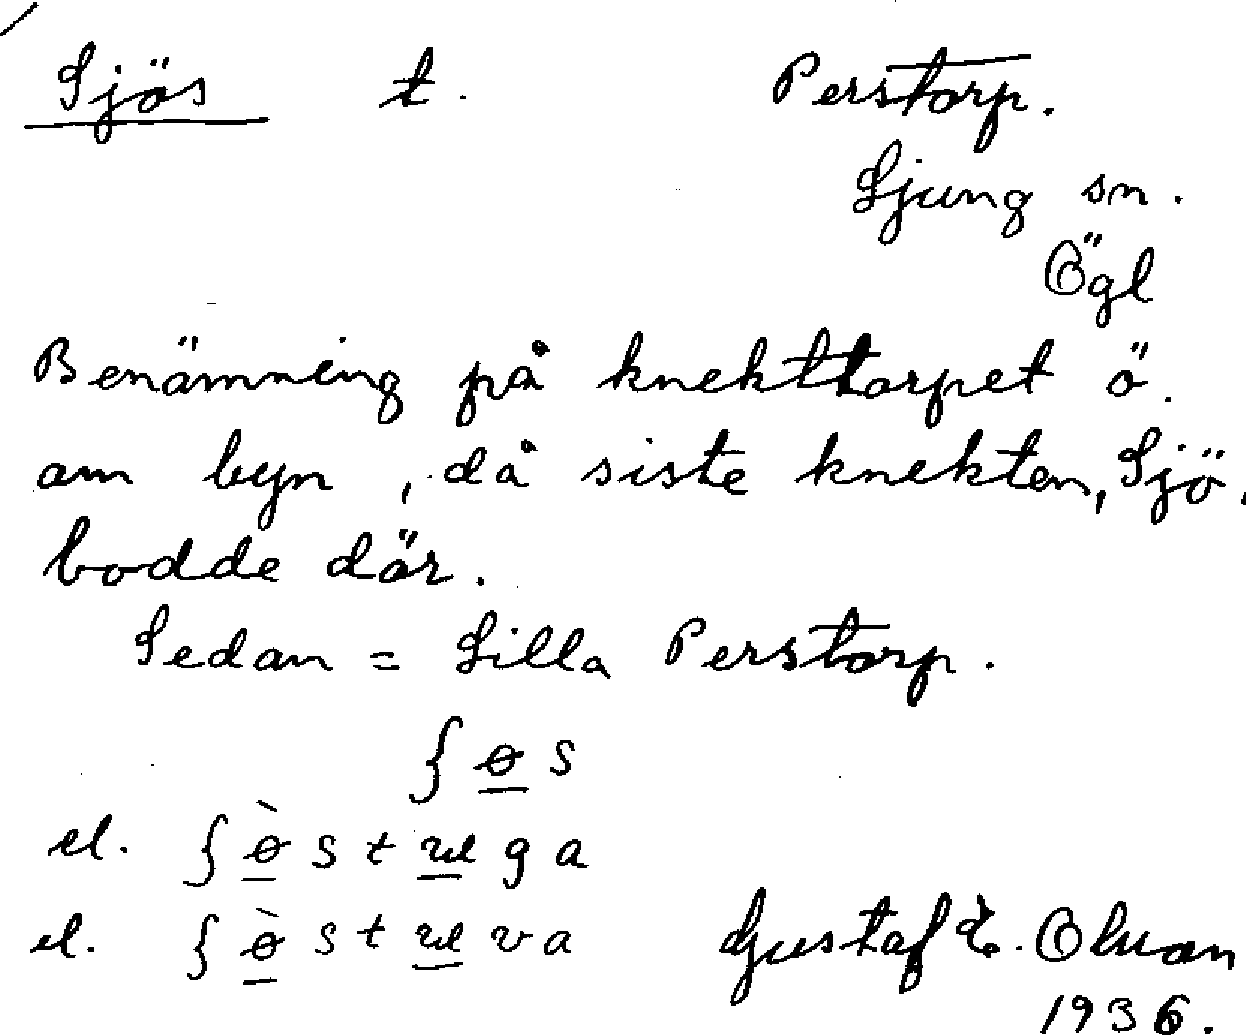 Sjös t. Perstorp.
Ljung sn.
Ögl
Benämning på knekttorpet ö.
om byn, då siste knekten, Sjö,
bodde där.
Sedan = Lilla Perstorp.
ʃ ɵ s
el. ʃ ɵ̀ s t ɯ g a
el. ʃ ɵ̀ s t ɯ v a
Gustaf
1936.